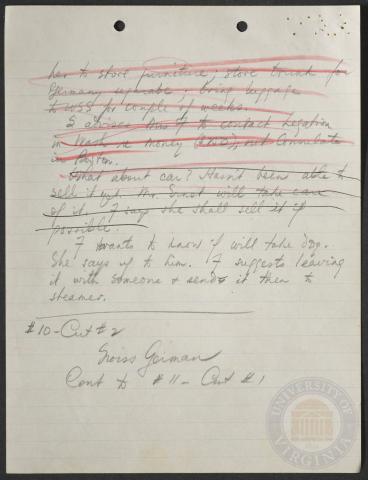 her to store furniture; store trunk for
Germany separate; bring luggage
to USS for couple of weeks.
S advises Mrs F to contact Legation
in Wash re money ( ), not Consulate
in Boston.
What about car? Hasn't been able to
sell it yet. Mr. Ernst will take care
of it. F says she shall sell it if
possible.
F wants to know if will take dog.
She says up to him. F suggests leaving
it with someone & send it then to
steamer.
#10 - Cut #2
Swiss German
Cont to #11 - Cut #1
UNIVERSITY OF VIRGINIA